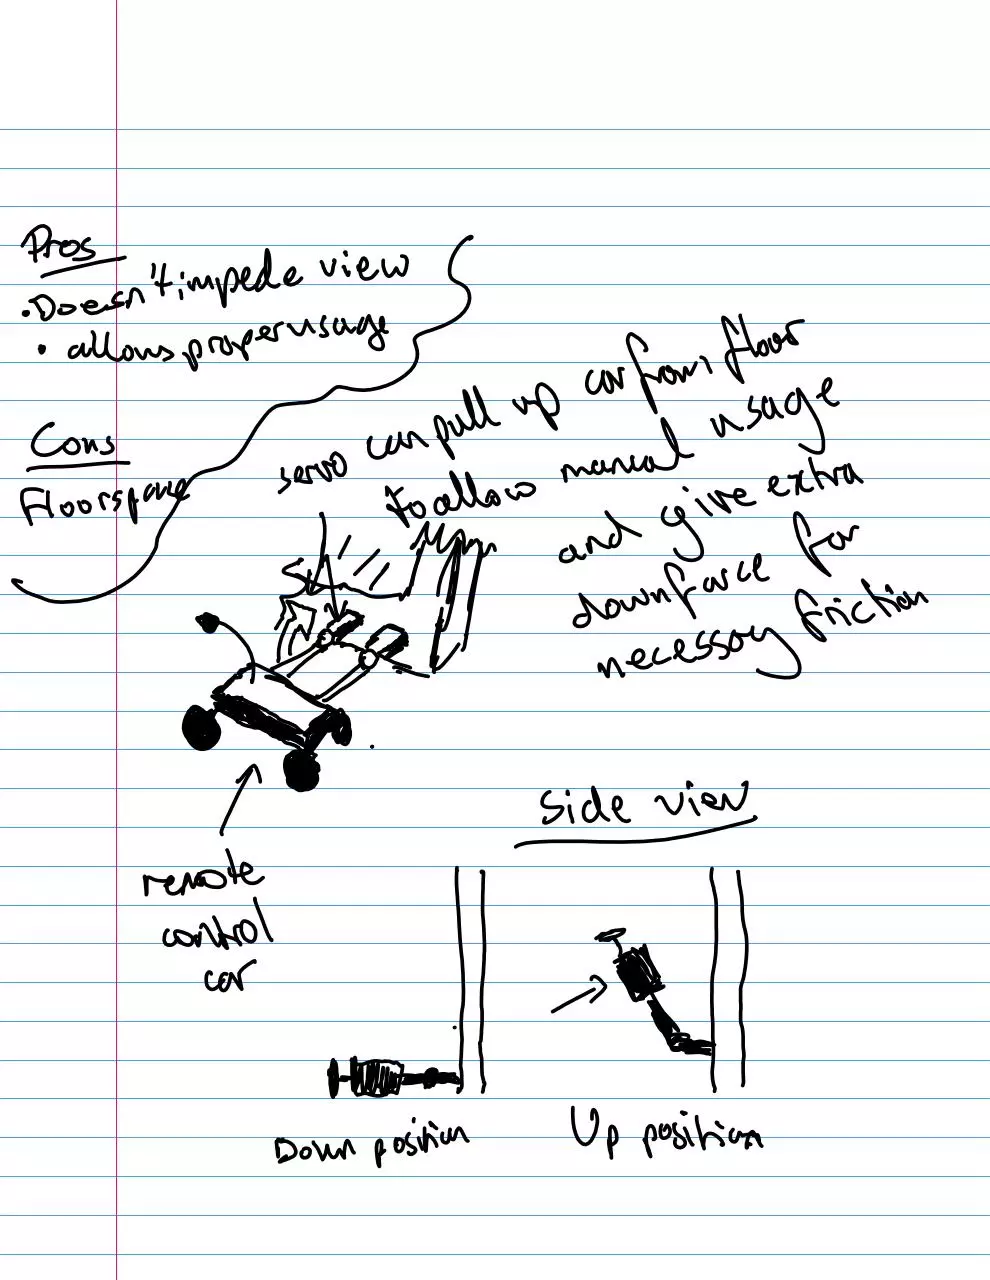 Pros
• Doesn't impede view
• allows proper usage
Cons
Floorspace
servo can pull up car from floor
to allow manual usage
and give extra
downforce for
necessary friction
remote
control
car
Side view
Down position
Up position